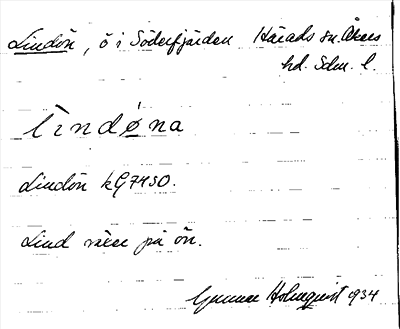 Lindön, ö i Söderfjärden Härads sn. Åkers
hd. Sdm. l.
lìndø̀na
Lindön kG7450.
Lind växer på ön.
Gunnar Holmquist 1934